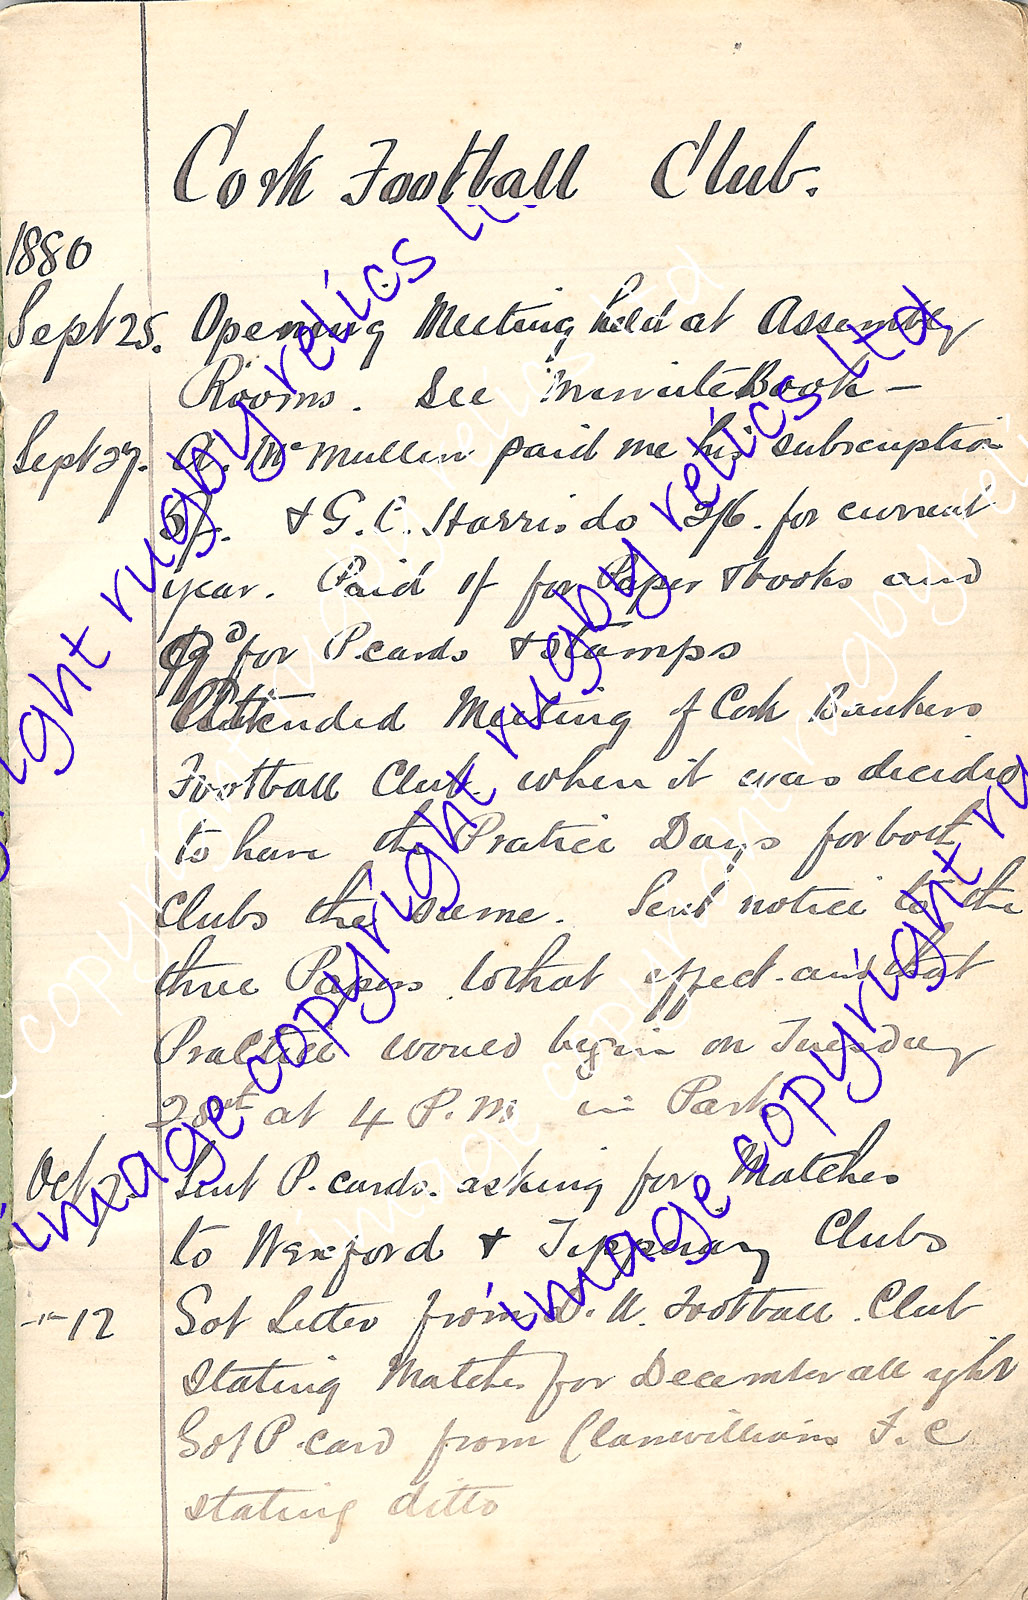 Cork Football Club.
1880
Sept 25. Opening Meeting held at Assembly
Rooms. See Minute Book —
Sept 27. A. McMullen paid me his subscription
5/-. & G. C. Harris do 2/6. for current
year. Paid 1/ for Paper & books and
9d for P.cards & stamps
Attended Meeting of Cork Bankers
Football Club when it was decided
to have the Pratice Days for both
Clubs the same. Sent notice to the
three Papers to that effect and that
Practice would begin on Tuesday
28th at 4 P.M. in Park
Oct Sent P. cards. asking for Matches
to Wexford & Tipperary Clubs
-"- 12 Got Letter from D. U. Football Club
stating Matches for December all right
Got P. card from Clanwilliam F.C
stating ditto
image copyright rugby relics ltd
image copyright rugby relics ltd